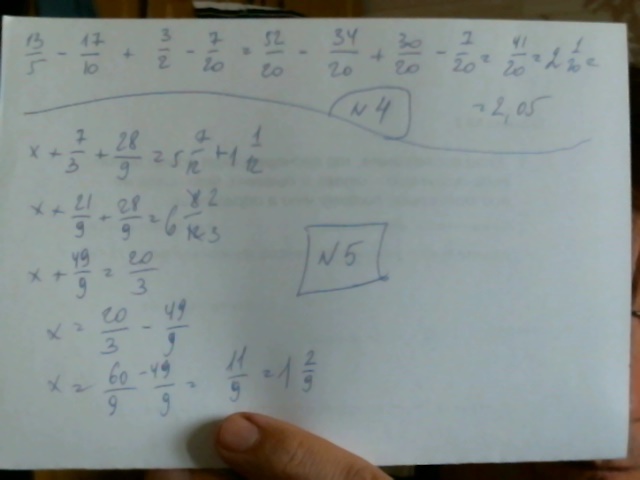 13/5 - 17/10 + 3/2 - 7/20 = 52/20 - 34/20 + 30/20 - 7/20 = 41/20 = 2 1/20 =
= 2,05
N4
x + 7/3 + 28/9 = 5 7/12 + 1 1/12
x + 21/9 + 28/9 = 6 8 2/12 3
x + 49/9 = 20/3
N5
x = 20/3 - 49/9
x = 60/9 - 49/9 = 11/9 = 1 2/9